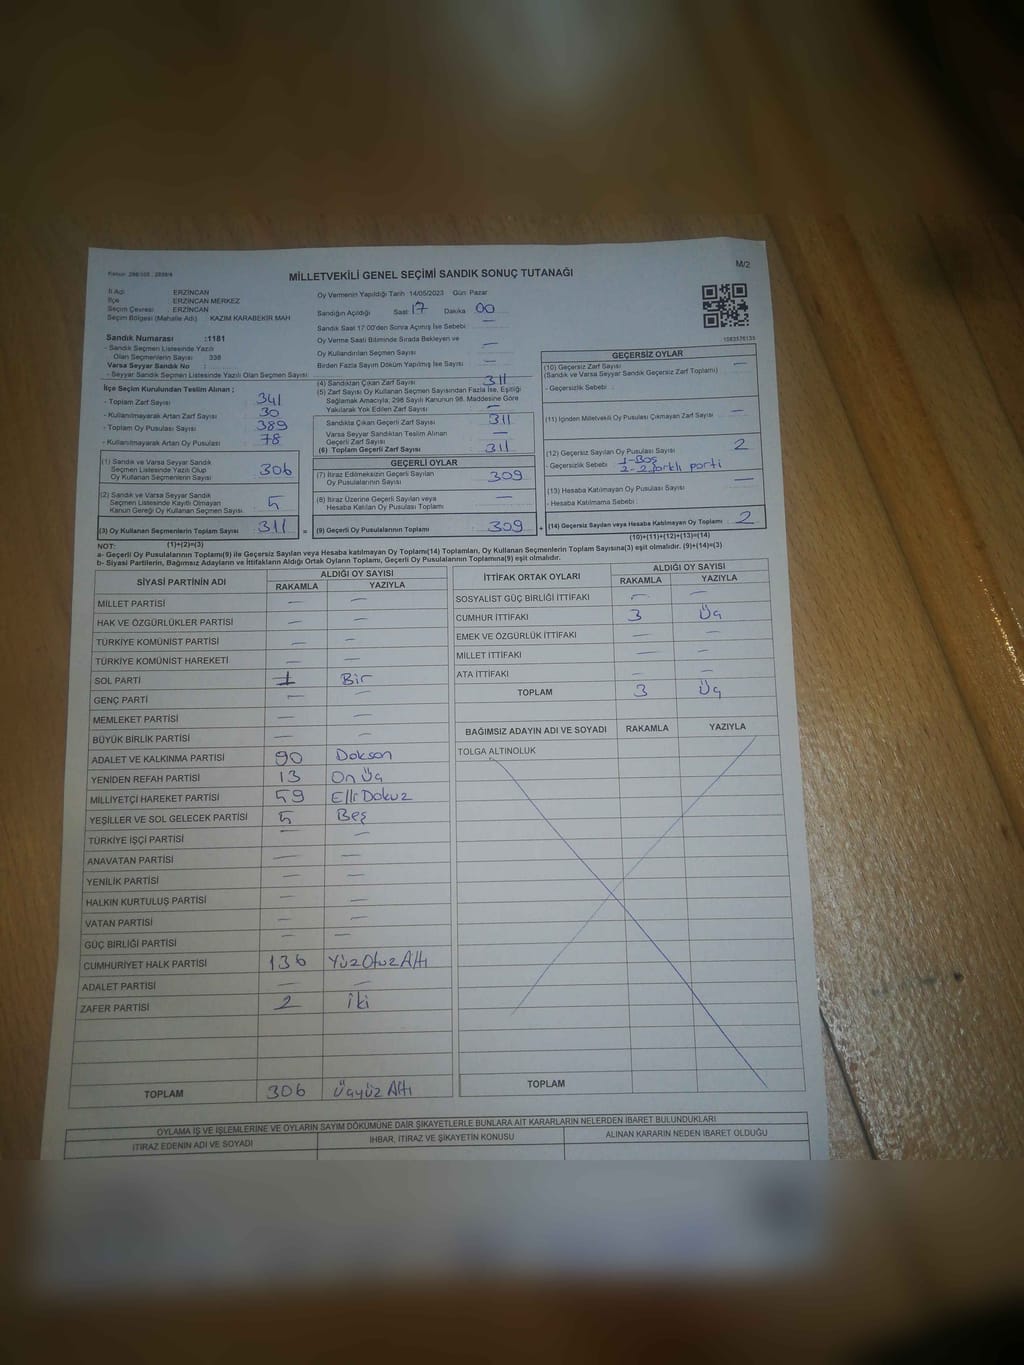 M/2
MİLLETVEKİLİ GENEL SEÇİMİ SANDIK SONUÇ TUTANAĞI
İl Adı : ERZİNCAN
İlçe : ERZİNCAN MERKEZ
Seçim Çevresi : ERZİNCAN
Seçim Bölgesi (Mahalle Adı) : KAZIM KARABEKİR MAH
Sandık Numarası :1181
- Sandık Seçmen Listesinde Yazılı
Olan Seçmenlerin Sayısı : 338
Varsa Seyyar Sandık No :
- Seyyar Sandık Seçmen Listesinde Yazılı Olan Seçmen Sayısı :
Oy Vermenin Yapıldığı Tarih :14/05/2023 Gün: Pazar
Sandığın Açıldığı Saat 17 Dakika 00
Sandık Saat 17:00'den Sonra Açılmış İse Sebebi : —
Oy Verme Saati Bitiminde Sırada Bekleyen ve
Oy Kullandırılan Seçmen Sayısı —
Birden Fazla Sayım Döküm Yapılmış İse Sayısı : —
İlçe Seçim Kurulundan Teslim Alınan ;
- Toplam Zarf Sayısı 341
- Kullanılmayarak Artan Zarf Sayısı 30
- Toplam Oy Pusulası Sayısı 389
- Kullanılmayarak Artan Oy Pusulası 78
(1) Sandık ve Varsa Seyyar Sandık
Seçmen Listesinde Yazılı Olup
Oy Kullanan Seçmenlerin Sayısı 306
(2) Sandık ve Varsa Seyyar Sandık
Seçmen Listesinde Kayıtlı Olmayan
Kanun Gereği Oy Kullanan Seçmen Sayısı 5
(3) Oy Kullanan Seçmenlerin Toplam Sayısı 311 =
(1)+(2)=(3)
(4) Sandıktan Çıkan Zarf Sayısı 311
(5) Zarf Sayısı Oy Kullanan Seçmen Sayısından Fazla İse, Eşitliği
Sağlamak Amacıyla; 298 Sayılı Kanunun 98. Maddesine Göre
Yakılarak Yok Edilen Zarf Sayısı —
Sandıkta Çıkan Geçerli Zarf Sayısı 311
Varsa Seyyar Sandıktan Teslim Alınan
Geçerli Zarf Sayısı —
(6) Toplam Geçerli Zarf Sayısı 311
GEÇERLİ OYLAR
(7) İtiraz Edilmeksizin Geçerli Sayılan
Oy Pusulalarının Sayısı 309
(8) İtiraz Üzerine Geçerli Sayılan veya
Hesaba Katılan Oy Pusulası Toplamı —
(9) Geçerli Oy Pusulalarının Toplamı 309 +
1083576135
GEÇERSİZ OYLAR
(10) Geçersiz Zarf Sayısı —
(Sandık ve Varsa Seyyar Sandık Geçersiz Zarf Toplamı)
- Geçersizlik Sebebi :
(11) İçinden Milletvekili Oy Pusulası Çıkmayan Zarf Sayısı —
(12) Geçersiz Sayılan Oy Pusulası Sayısı 2
- Geçersizlik Sebebi 1-Boş
2- 2 parti
(13) Hesaba Katılmayan Oy Pusulası Sayısı —
- Hesaba Katılmama Sebebi :
(14) Geçersiz Sayılan veya Hesaba Katılmayan Oy Toplamı 2
(10)+(11)+(12)+(13)=(14)
NOT:
a- Geçerli Oy Pusulalarının Toplamı(9) ile Geçersiz Sayılan veya Hesaba katılmayan Oy Toplamı(14) Toplamları, Oy Kullanan Seçmenlerin Toplam Sayısına(3) eşit olmalıdır. (9)+(14)=(3)
b- Siyasi Partilerin, Bağımsız Adayların ve İttifakların Aldığı Ortak Oyların Toplamı, Geçerli Oy Pusulalarının Toplamına(9) eşit olmalıdır.
SİYASİ PARTİNİN ADI ALDIĞI OY SAYISI
RAKAMLA YAZIYLA
MİLLET PARTİSİ — —
HAK VE ÖZGÜRLÜKLER PARTİSİ — —
TÜRKİYE KOMÜNİST PARTİSİ — —
TÜRKİYE KOMÜNİST HAREKETİ — —
SOL PARTİ 1 Bir
GENÇ PARTİ — —
MEMLEKET PARTİSİ — —
BÜYÜK BİRLİK PARTİSİ — —
ADALET VE KALKINMA PARTİSİ 90 Doksan
YENİDEN REFAH PARTİSİ 13 On Üç
MİLLİYETÇİ HAREKET PARTİSİ 59 Elli Dokuz
YEŞİLLER VE SOL GELECEK PARTİSİ 5 Beş
TÜRKİYE İŞÇİ PARTİSİ — —
ANAVATAN PARTİSİ — —
YENİLİK PARTİSİ — —
HALKIN KURTULUŞ PARTİSİ — —
VATAN PARTİSİ — —
GÜÇ BİRLİĞİ PARTİSİ — —
CUMHURİYET HALK PARTİSİ 136 Yüz Otuz Altı
ADALET PARTİSİ — —
ZAFER PARTİSİ 2 İki
TOPLAM 306 Üçyüz Altı
İTTİFAK ORTAK OYLARI ALDIĞI OY SAYISI
RAKAMLA YAZIYLA
SOSYALİST GÜÇ BİRLİĞİ İTTİFAKI — —
CUMHUR İTTİFAKI 3 Üç
EMEK VE ÖZGÜRLÜK İTTİFAKI — —
MİLLET İTTİFAKI — —
ATA İTTİFAKI — —
TOPLAM 3 Üç
BAĞIMSIZ ADAYIN ADI VE SOYADI RAKAMLA YAZIYLA
TOLGA ALTINOLUK
TOPLAM
OYLAMA İŞ VE İŞLEMLERİNE VE OYLARIN SAYIM DÖKÜMÜNE DAİR ŞİKAYETLERLE BUNLARA AİT KARARLARIN NELERDEN İBARET BULUNDUKLARI
İTİRAZ EDENİN ADI VE SOYADI İHBAR, İTİRAZ VE ŞİKAYETİN KONUSU ALINAN KARARIN NEDEN İBARET OLDUĞU